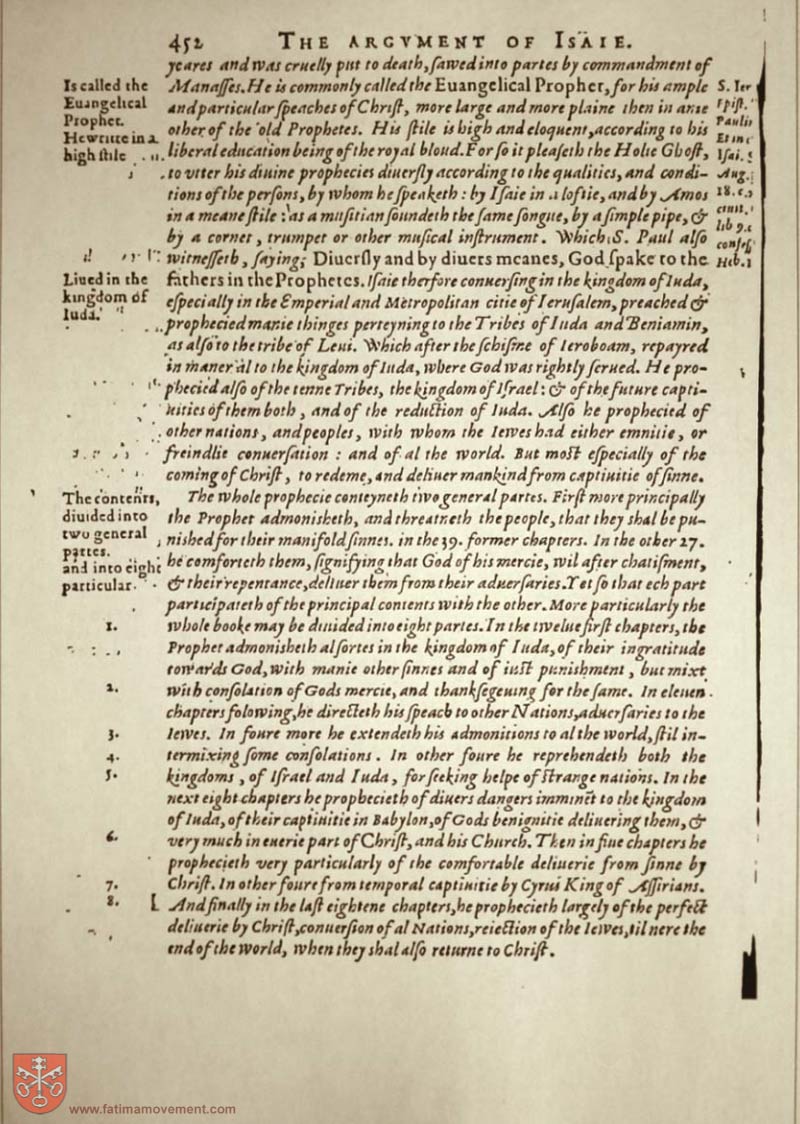 452 THE ARGVMENT OF ISAIE.
yeares and was cruelly put to death, ſawed into partes by commandment of
Manaſſes. He is commonly called the Euangelical Prophet, for his ample
and particular ſpeaches of Chriſt, more large and more plaine then in anie
other of the old Prophetes. His ſtile is high and eloquent, according to his
liberal education being of the royal bloud. For ſo it pleaſeth the Holie Ghoſt,
to vtter his diuine prophecies diuerſly according to the qualities, and condi-
tions of the perſons, by whom he ſpeaketh: by Iſaie in a loftie, and by Amos
in a meane ſtile: as a muſitian ſoundeth the ſame ſongue, by a ſimple pipe, &
by a cornet, trumpet or other muſical inſtrument. Which S. Paul alſo
witneſſeth, ſaying; Diuerſly and by diuers meanes, God ſpake to the
fathers in the Prophetes. Iſaie therfore conuerſing in the kingdom of Iuda,
eſpecially in the Emperial and Metropolitan citie of Ieruſalem, preached &
prophecied manie thinges perteyning to the Tribes of Iuda and Beniamin,
as alſo to the tribe of Leui. Which after the ſchiſme of Ieroboam, repayred
in maner al to the kingdom of Iuda, where God was rightly ſerued. He pro-
phecied alſo of the tenne Tribes, the kingdom of Iſrael: & of the future capti-
uities of them both, and of the reduction of Iuda. Alſo he prophecied of
other nations, and peoples, with whom the Iewes had either emnitie, or
freindlie conuerſation: and of al the world. But moſt eſpecially of the
coming of Chriſt, to redeme, and deliuer mankind from captiuitie of ſinne.
The whole prophecie conteyneth two general partes. Firſt more principally
the Prophet admonisheth, and threatneth the people, that they shal be pu-
nished for their manifold ſinnes. in the 39. former chapters. In the other 27.
he comforteth them, ſignifying that God of his mercie, wil after chatiſment,
& their repentance, deliuer them from their aduerſaries. Yet ſo that ech part
participateth of the principal contents with the other. More particularly the
whole booke may be diuided into eight partes. In the twelue firſt chapters, the
Prophet admonisheth al ſortes in the kingdom of Iuda, of their ingratitude
towards God, with manie other ſinnes and of iuſt punishment, but mixt
with conſolation of Gods mercie, and thankſegeuing for the ſame. In eleuen
chapters folowing, he directeth his ſpeach to other Nations, aduerſaries to the
Iewes. In foure more he extendeth his admonitions to al the world, ſtil in-
termixing ſome conſolations. In other foure he reprehendeth both the
kingdoms, of Iſrael and Iuda, for ſeeking helpe of ſtrange nations. In the
next eight chapters he prophecieth of diuers dangers imminēt to the kingdom
of Iuda, of their captiuitie in Babylon, of Gods benignitie deliuering them, &
very much in euerie part of Chriſt, and his Church. Then in fiue chapters he
prophecieth very particularly of the comfortable deliuerie from ſinne by
Chriſt. In other foure from temporal captiuitie by Cyrus King of Aſſirians.
And finally in the laſt eightene chapters, he prophecieth largely of the perfect
deliuerie by Chriſt, conuerſion of al Nations, reiection of the Iewes, til nere the
end of the world, when they shal alſo returne to Chriſt.
Is called the
Euangelical
Prophet.
He write in a
high ſtile
Liued in the
kingdom of
Iuda.
The contents,
diuided into
two general
partes.
and into eight
particular.
1.
2.
3.
4.
5.
6.
7.
8.
S. Ier
epiſt.
Paulin
Et in c
Iſai. 
Aug.
18. c.
ciuit.
lib 9. c
confeſ
Heb. 1
www.fatimamovement.com